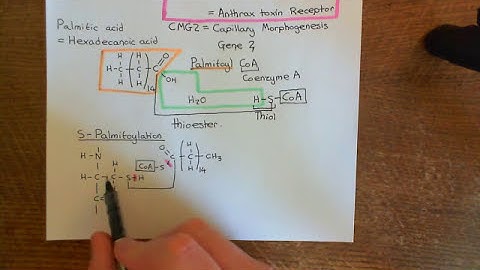 = Anthrax toxin Receptor
Palmitic acid
= Hexadecanoic acid
CMG2 = Capillary Morphogenesis
Gene 2
Palmitoyl CoA
Coenzyme A
H H O
H-C-(C)-C
H H 14 OH
H2O
H-S-CoA
Thiol
thioester
S-Palmitoylation
O H
C-(C)-CH3
H 14
CoA-S
H-N
H
H-C-C-S-H
C